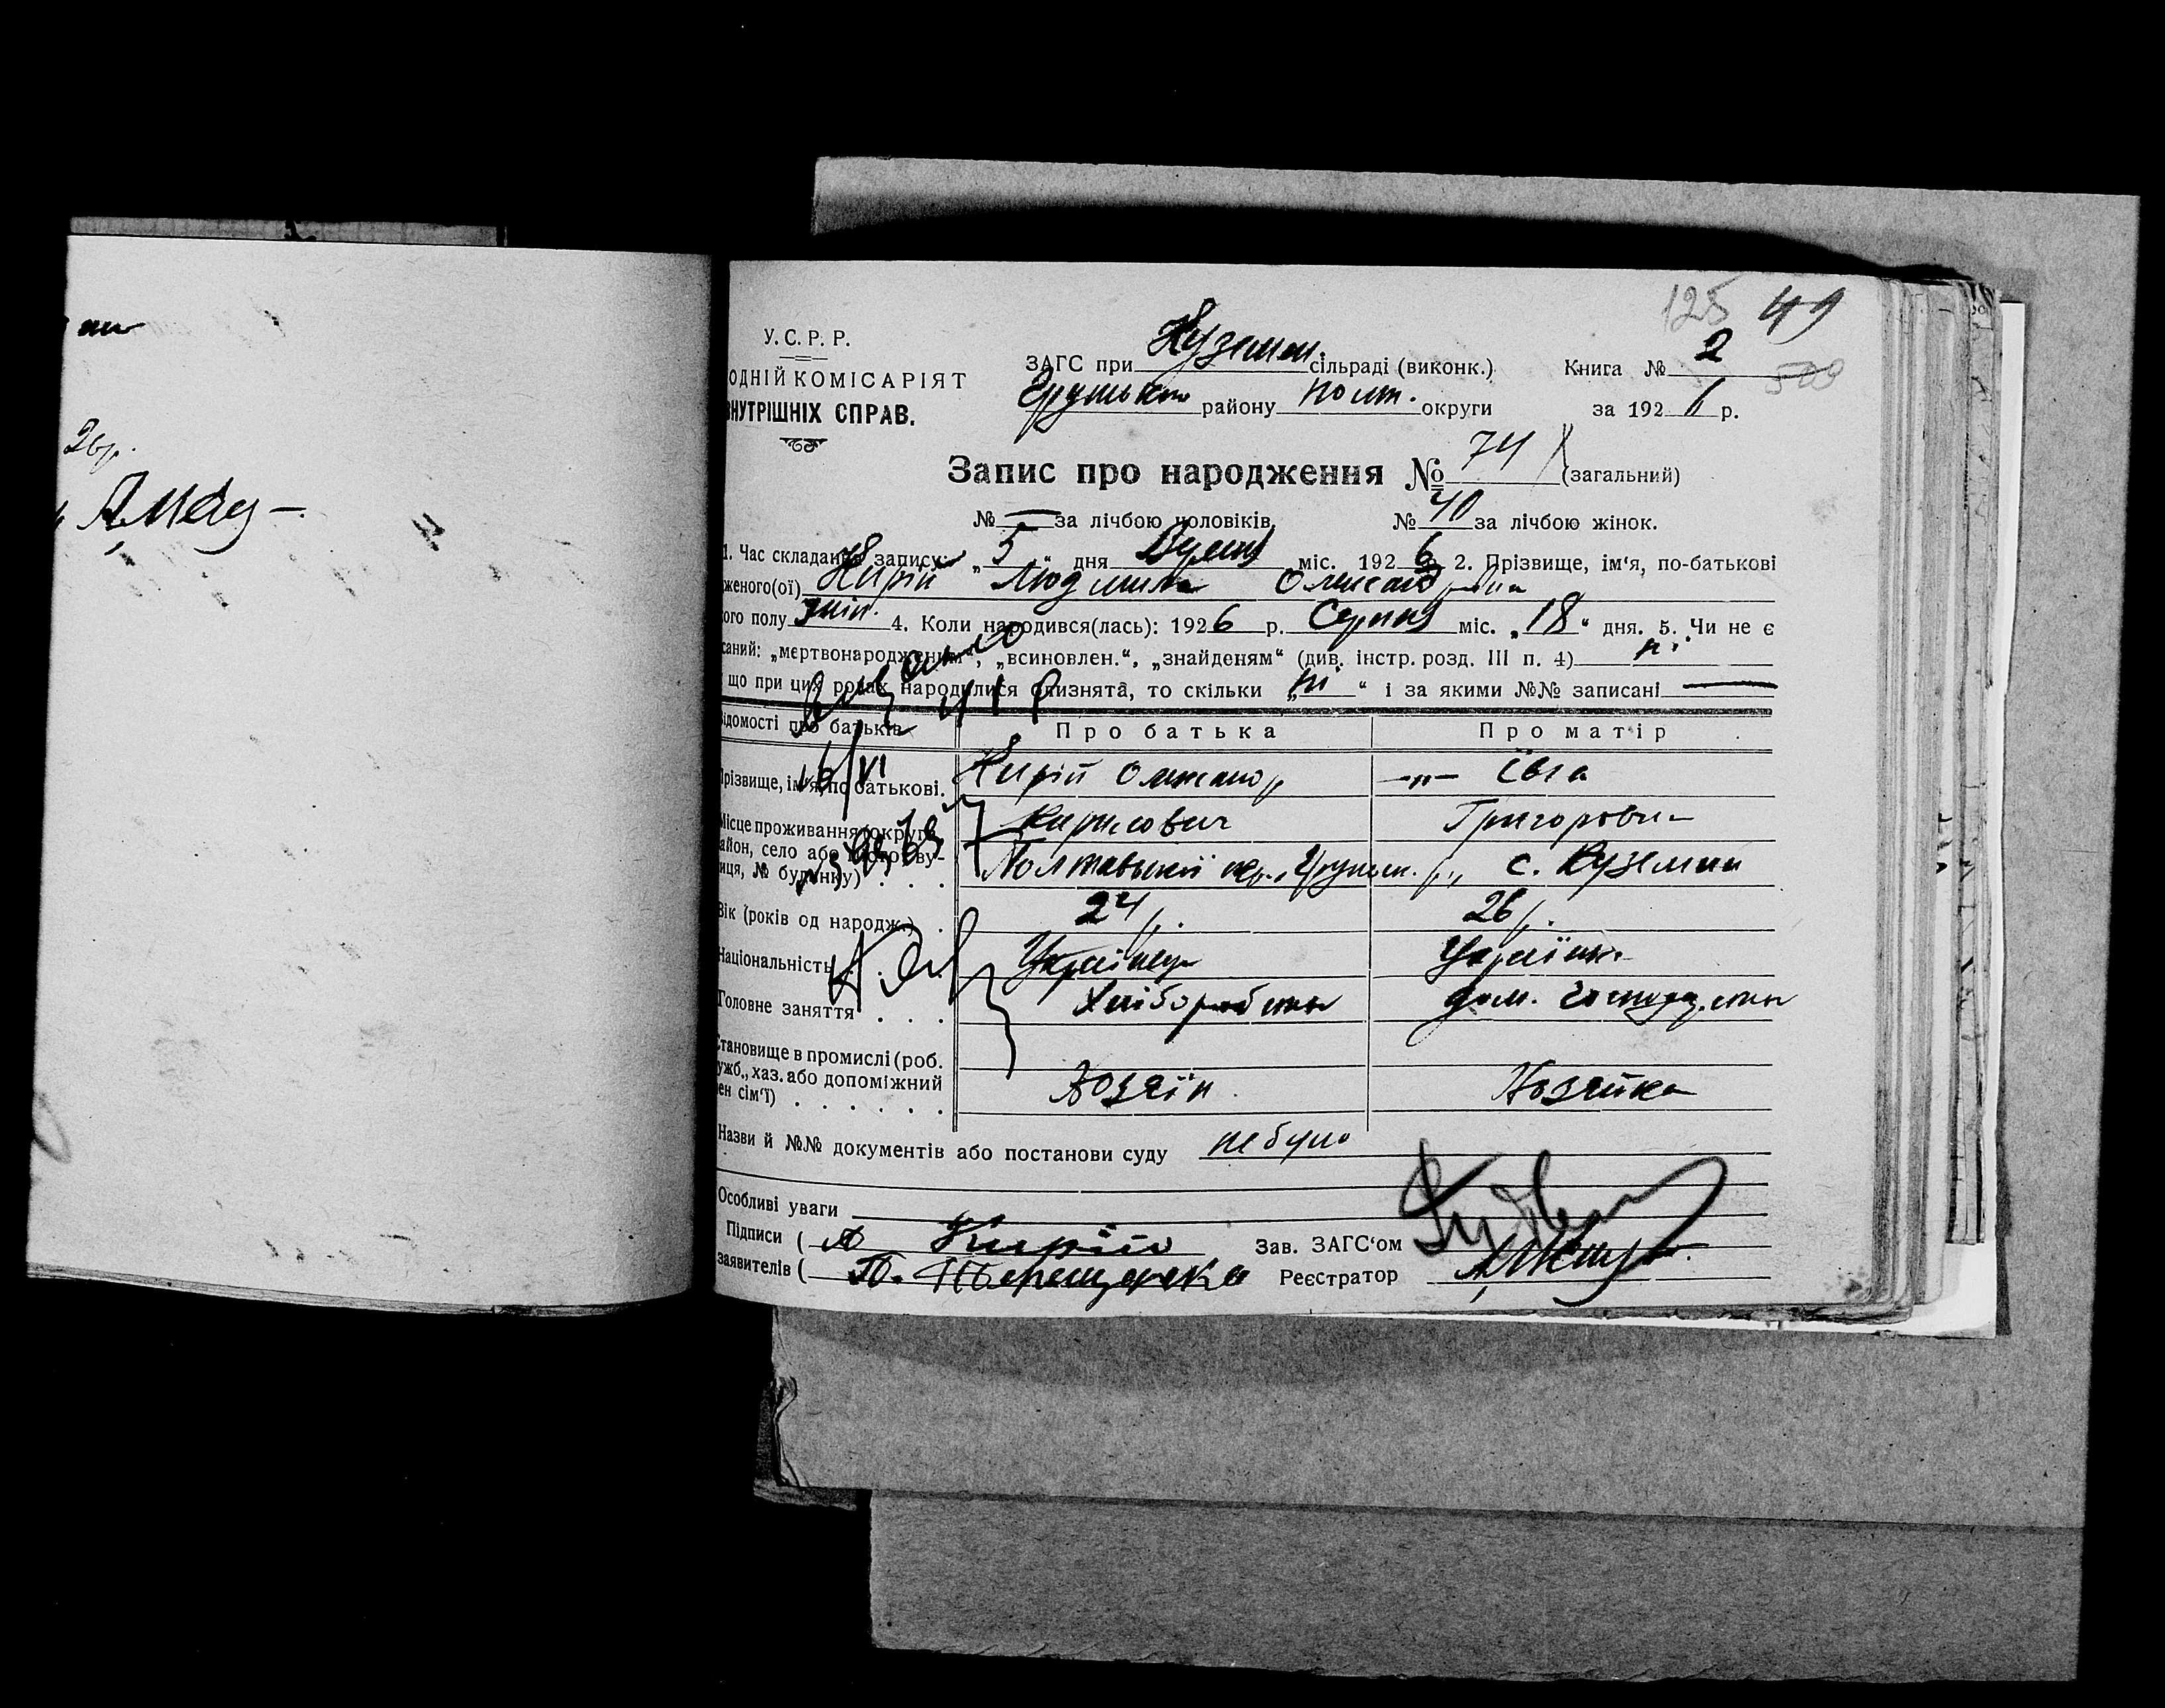 125 49
У. С. Р. Р.
ЗАГС при Куземен. сільраді (виконк.) Книга № 2
509
ОДНІЙ КОМІСАРІЯТ
району Полт. округи за 192 р.
НУТРІШНІХ СПРАВ.
Запис про народження № 74 (загальний)
№ — за лічбою чоловіків, № 40 за лічбою жінок.
1. Час складання запису: „5“ дня міс. 1926 2. Прізвище, ім'я, по-батькові
женого(ої) Кирій Людмила Олександрівна
ого полу жін. 4. Коли народився(лась): 1926 р. Серпня міс. „18“ дня. 5. Чи не є
саний: „мертвонародженим“, „всиновлен.“, „знайденям“ (див. інстр. розд. III п. 4) ні
що при цих родах народилися близнята, то скільки „ні“ і за якими №№ записані —
ідомості про батьків Про батька Про матір
Прізвище, ім'я, по батькові. Кирій Олександр —„— Євга
Кирилович Григоровна
Місце проживання (округа,
айон, село або місто, ву-
иця, № будинку) . . . Полтавської окр., Грунськ. р., с. Куземин
Вік (років од народж.) . 24 р. 26 р.
Національність . . . Українець Українка
Головне заняття . . . Хліборобство дом. господ.ство
Становище в промислі (роб.
ужб., хаз. або допоміжний
ен сім'ї) . . . . . . Хозяїн Хозяйка
Назви й №№ документів або постанови суду не було
Особливі уваги
Підписи ( А Кирій Зав. ЗАГС'ом
заявителів ( П. Терещенко Реєстратор